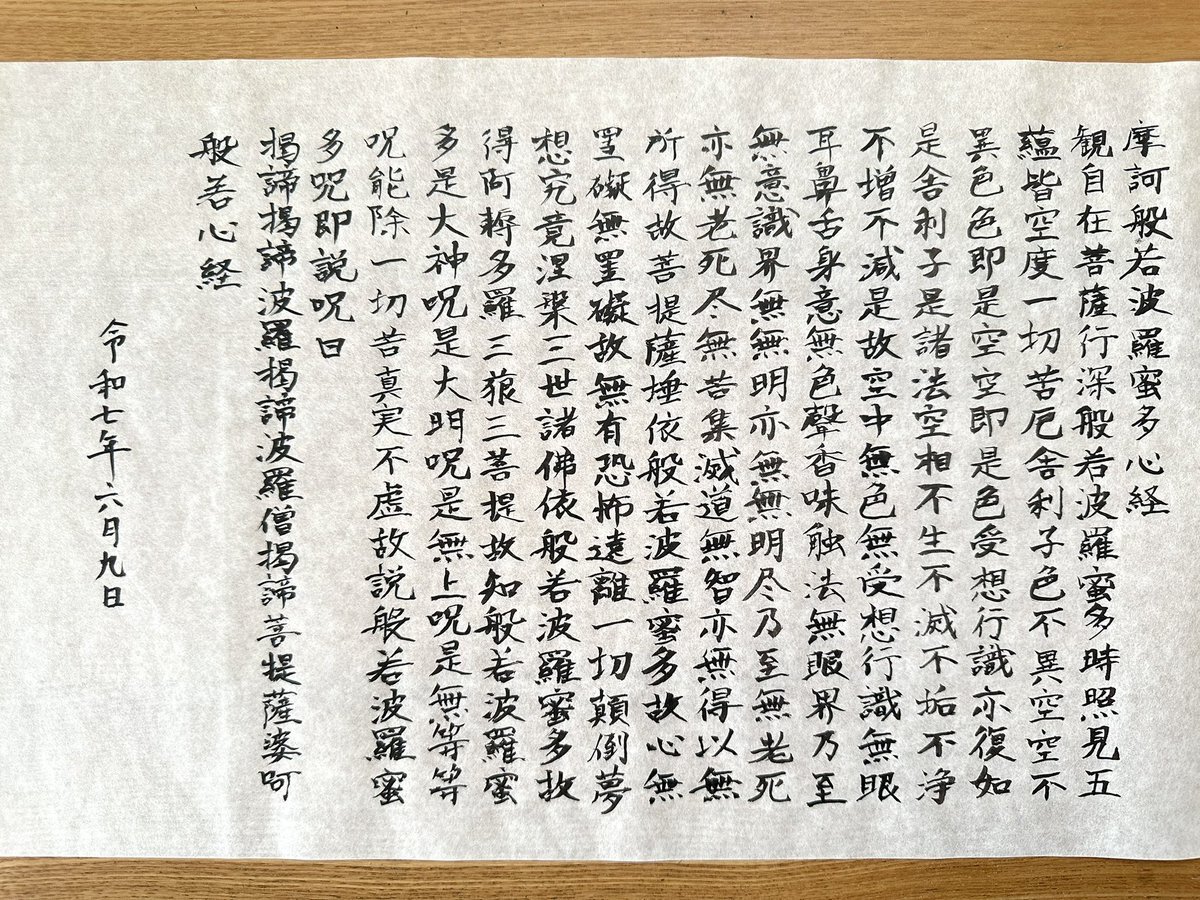 摩訶般若波羅蜜多心経
観自在菩薩行深般若波羅蜜多時照見五
蘊皆空度一切苦厄舎利子色不異空空不
異色色即是空空即是色受想行識亦復如
是舎利子是諸法空相不生不滅不垢不浄
不増不減是故空中無色無受想行識無眼
耳鼻舌身意無色聲香味触法無眼界乃至
無意識界無無明亦無無明尽乃至無老死
亦無老死尽無苦集滅道無智亦無得以無
所得故菩提薩埵依般若波羅蜜多故心無
罣礙無罣礙故無有恐怖遠離一切顛倒夢
想究竟涅槃三世諸佛依般若波羅蜜多故
得阿耨多羅三藐三菩提故知般若波羅蜜
多是大神呪是大明呪是無上呪是無等等
呪能除一切苦真実不虚故説般若波羅蜜
多呪即説呪曰
掲諦掲諦波羅掲諦波羅僧掲諦菩提薩婆呵
般若心経
令和七年六月九日